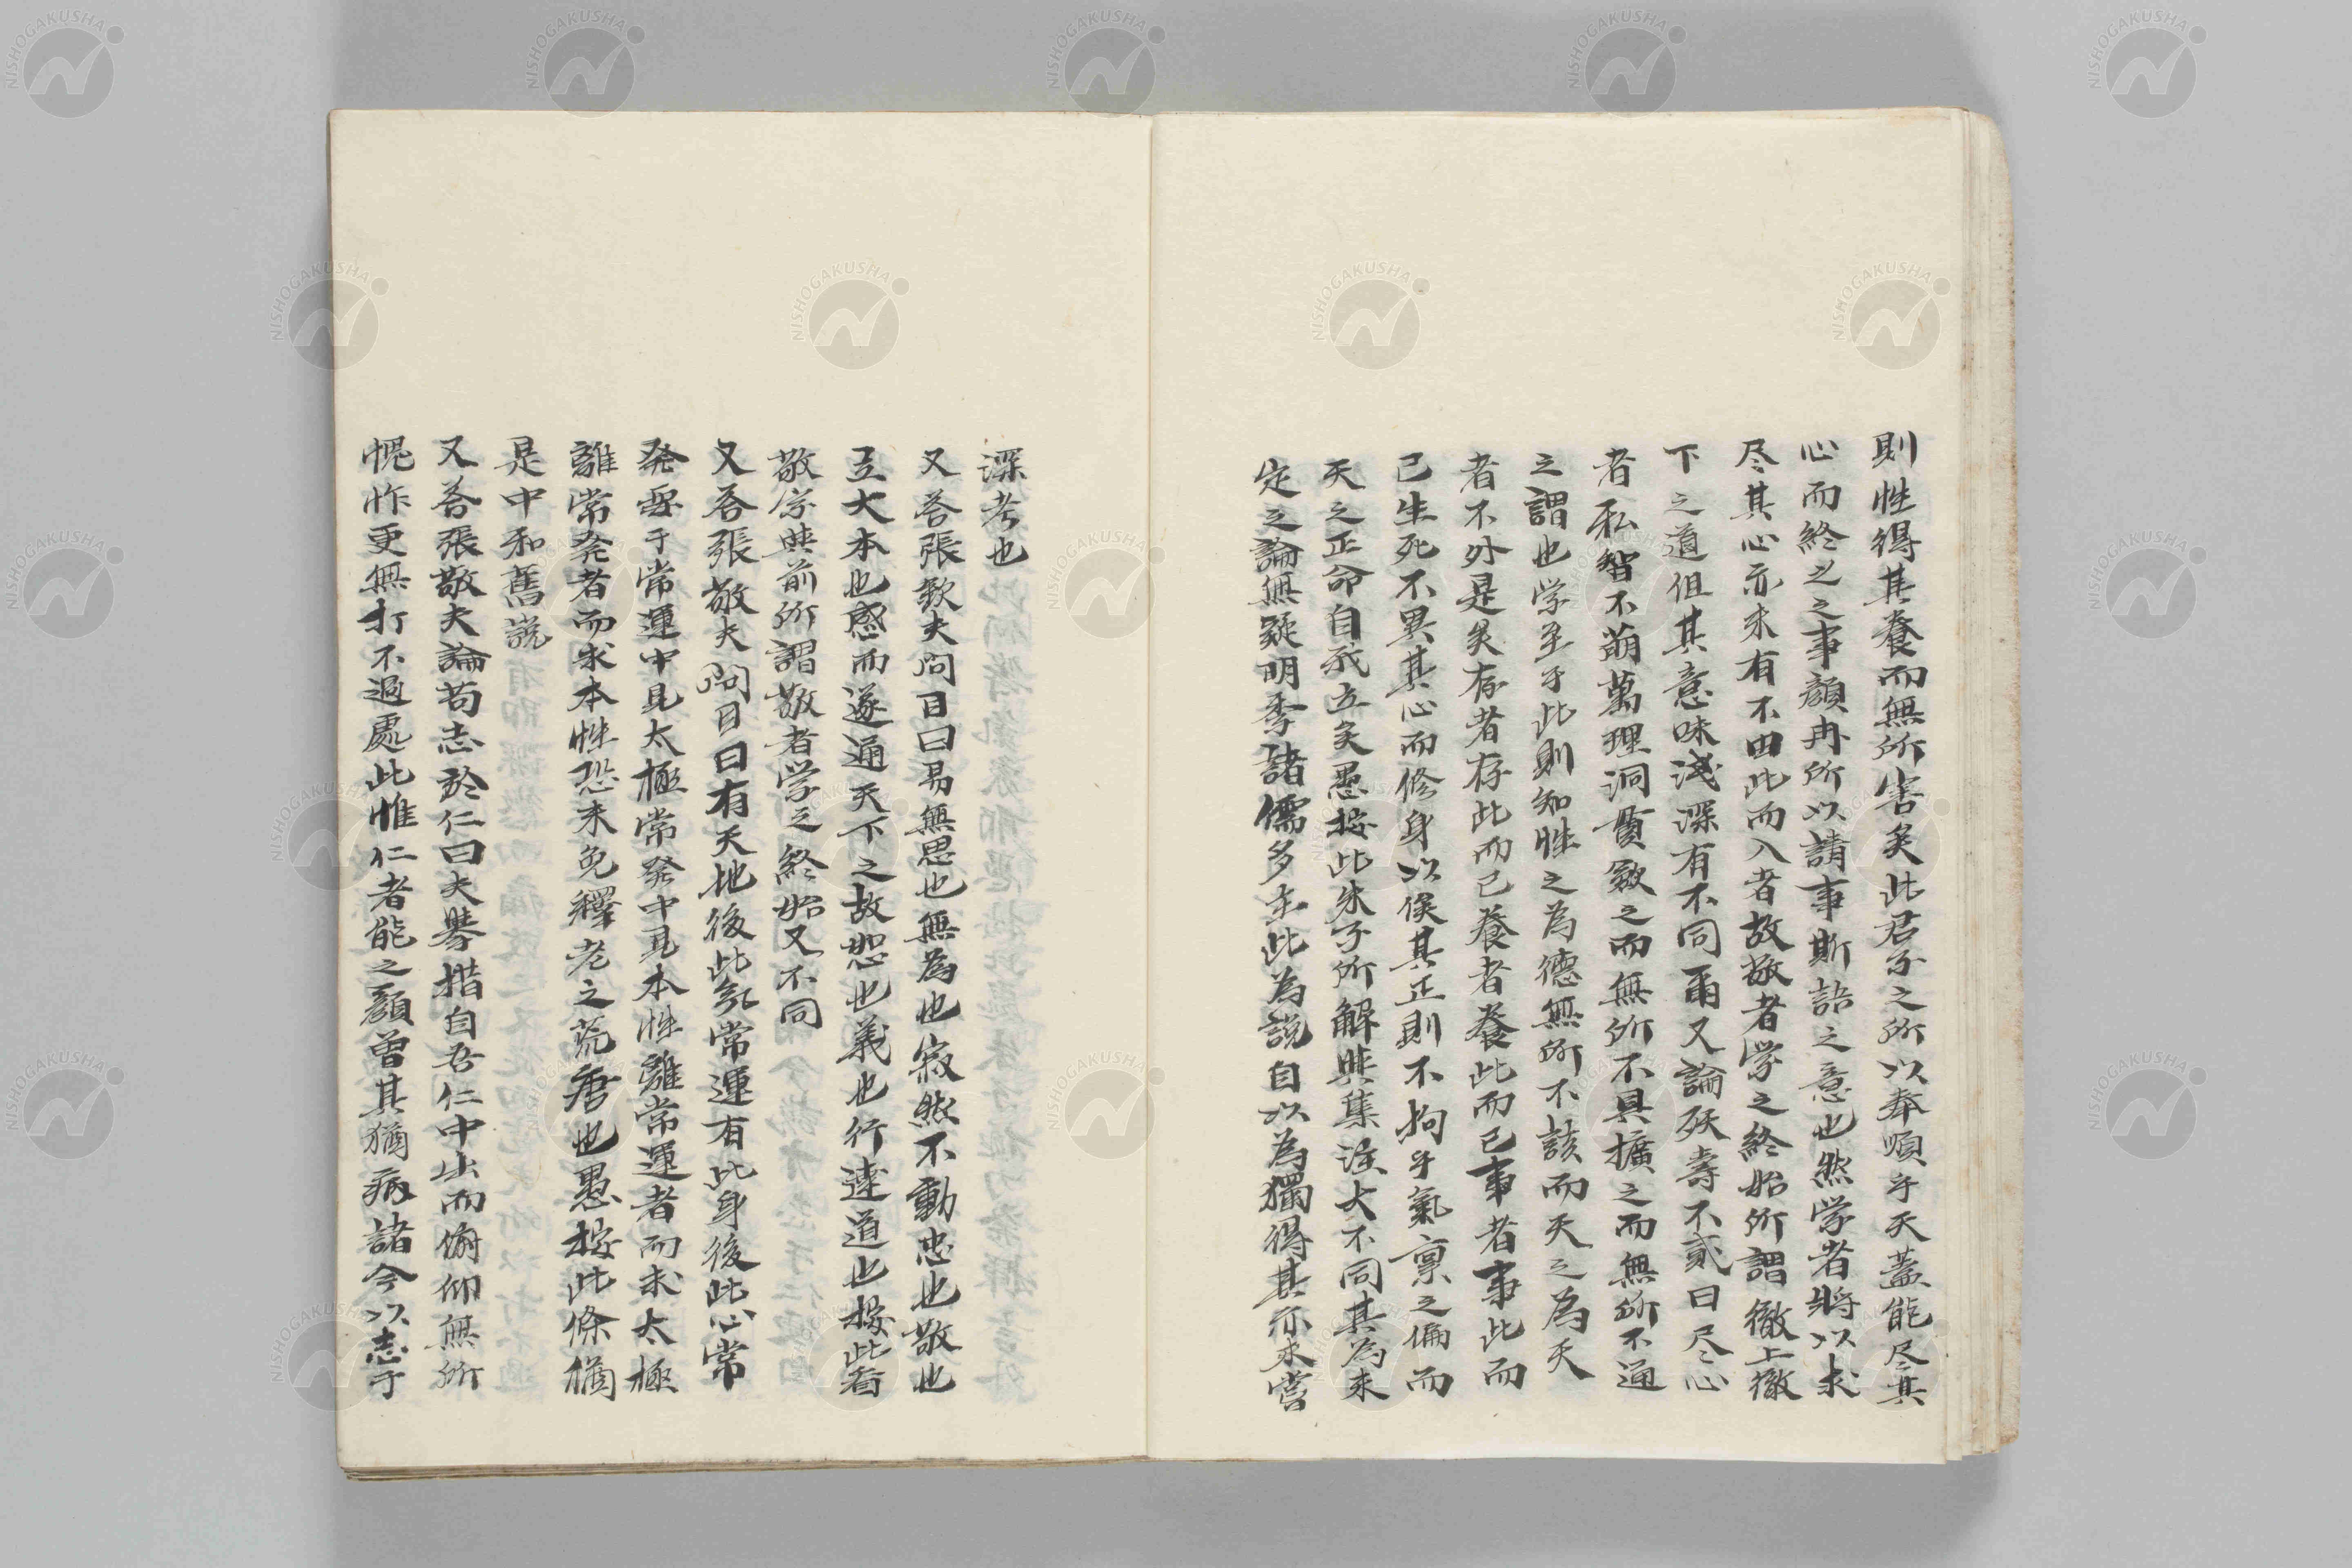 則性得其養而無所害矣此君子之所以奉順乎天蓋能尽其
心而終之之事顔冉所以請事斯語之意也然学者將以求
尽其心亦未有不由此而入者故敬者学之終始所謂徹上徹
下之道但其意味淺深有不同爾又論殀壽不貳曰尽心
者私智不萌萬理洞貫斂之而無所不具擴之而無所不通
之謂也学至于此則知性之為德無所不該而天之為天
者不外是矣存者存此而已養者養此而已事者事此而
已生死不異其心而修身以俟其正則不拘乎氣稟之偏而
天之正命自我立矣愚按此朱子所解與集註大不同其為未
定之論無疑明季諸儒多主此為説自以為獨得其亦未嘗
深考也
又荅張欽夫問目曰易無思也無為也寂然不動忠也敬也
立大本也感而遂通天下之故恕也義也行達道也按此看
敬字與前所謂敬者学之終始又不同
又荅張敬夫問目曰有天地後此氣常運有此身後此心常
発要于常運中見太極常發中見本性離常運者而求太極
離常発者而求本性恐未免釋老之荒唐也愚按此條猶
是中和舊説
又荅張敬夫論苟志於仁曰夫擧措自吾仁中出而俯仰無所
愧怍更無打不過處此惟仁者能之顔曾其猶病諸今以志于